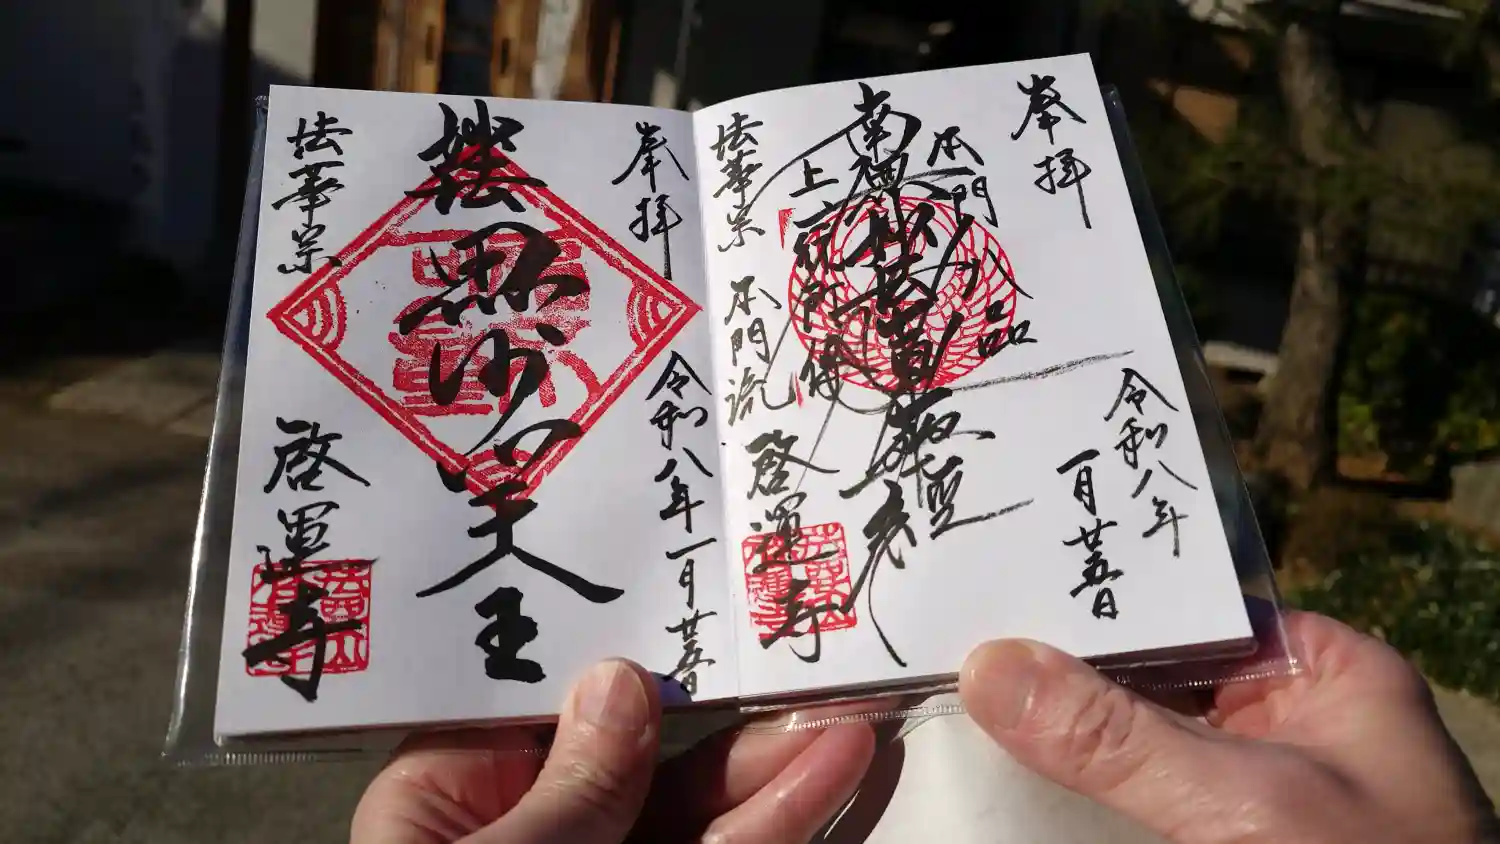 奉拝
令和八年
一月廿五日
本門八品
南無妙法蓮華経
上行所傳
法華宗
本門流
啓運寺
奉拝
令和八年一月廿五日
毘沙門天王
法華宗
啓運寺